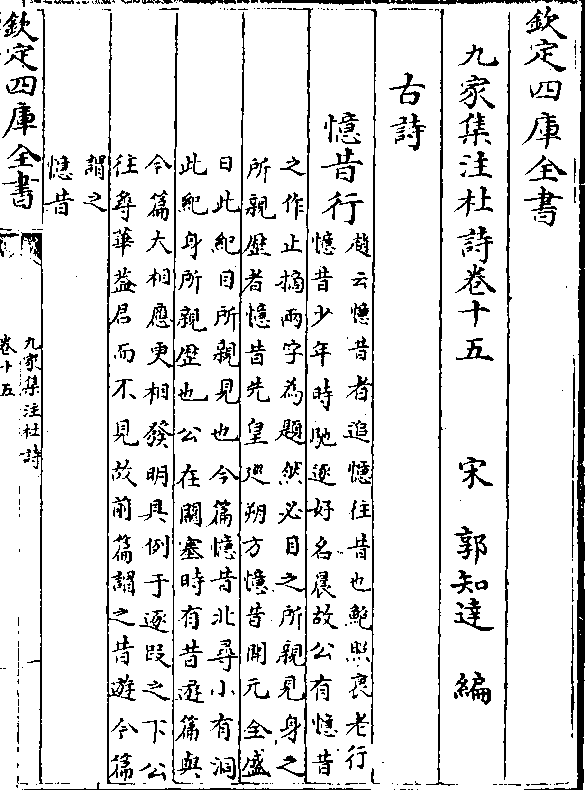 欽定四庫全書
九家集注杜詩卷十五
宋 郭知達 編
古詩
憶昔行
趙云憶昔者追憶往昔也鮑照衰老行
憶昔少年時馳逐好名晨故公有憶昔
之作止摘兩字為題然必目之所親見身之
所親歴者憶昔先皇廵朔方憶昔開元全盛
日此紀目所親見也今篇憶昔北尋小有洞
此紀身所親歴也公在關塞時有昔遊篇與
今篇大相應更相發明具例于逐段之下公
往尋華蓋君而不見故前篇謂之昔遊今篇
謂之
憶昔
欽定四庫全書
九家集注杜詩
卷十五
一